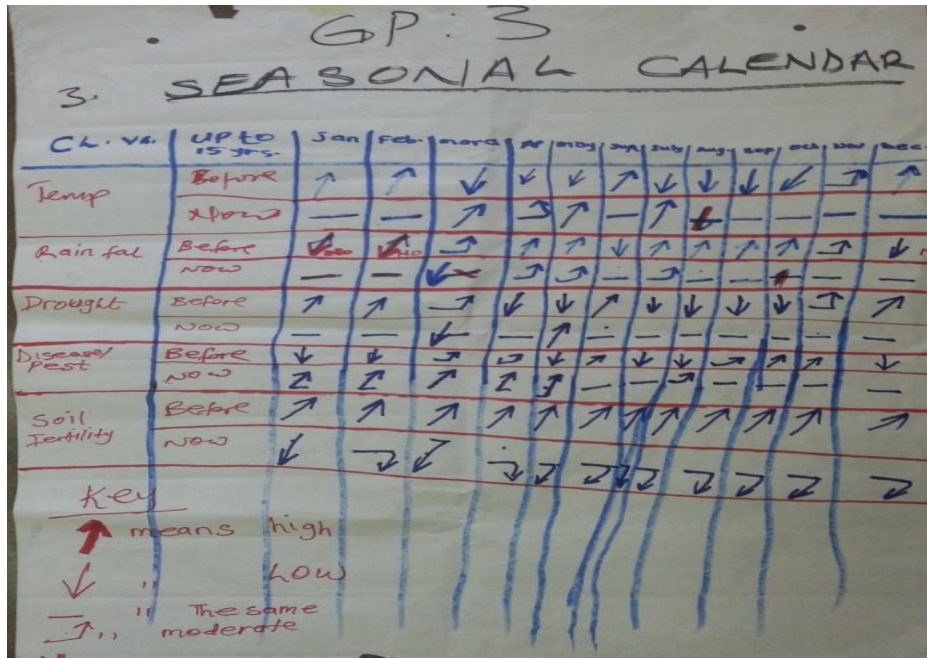 GP: 3
3. SEASONAL CALENDAR
CL. VA. UP to 15 yrs. Jan Feb. marc Ap may Jun Aug Sep oct Nov Dec.
Temp Before ↑ ↑ ↓ ↓ ↓ ↑ ↓ ↓ ↓ ↓ ↑
Now — — ↑ ↑ — ↑ — — — —
Rain fal Before
NOW
Drought Before
NOW
Disease/ Pest Before
NOW
Soil Before
Fertility NOW
Key
↑ means high
↓ " LOW
— " The same
" moderate